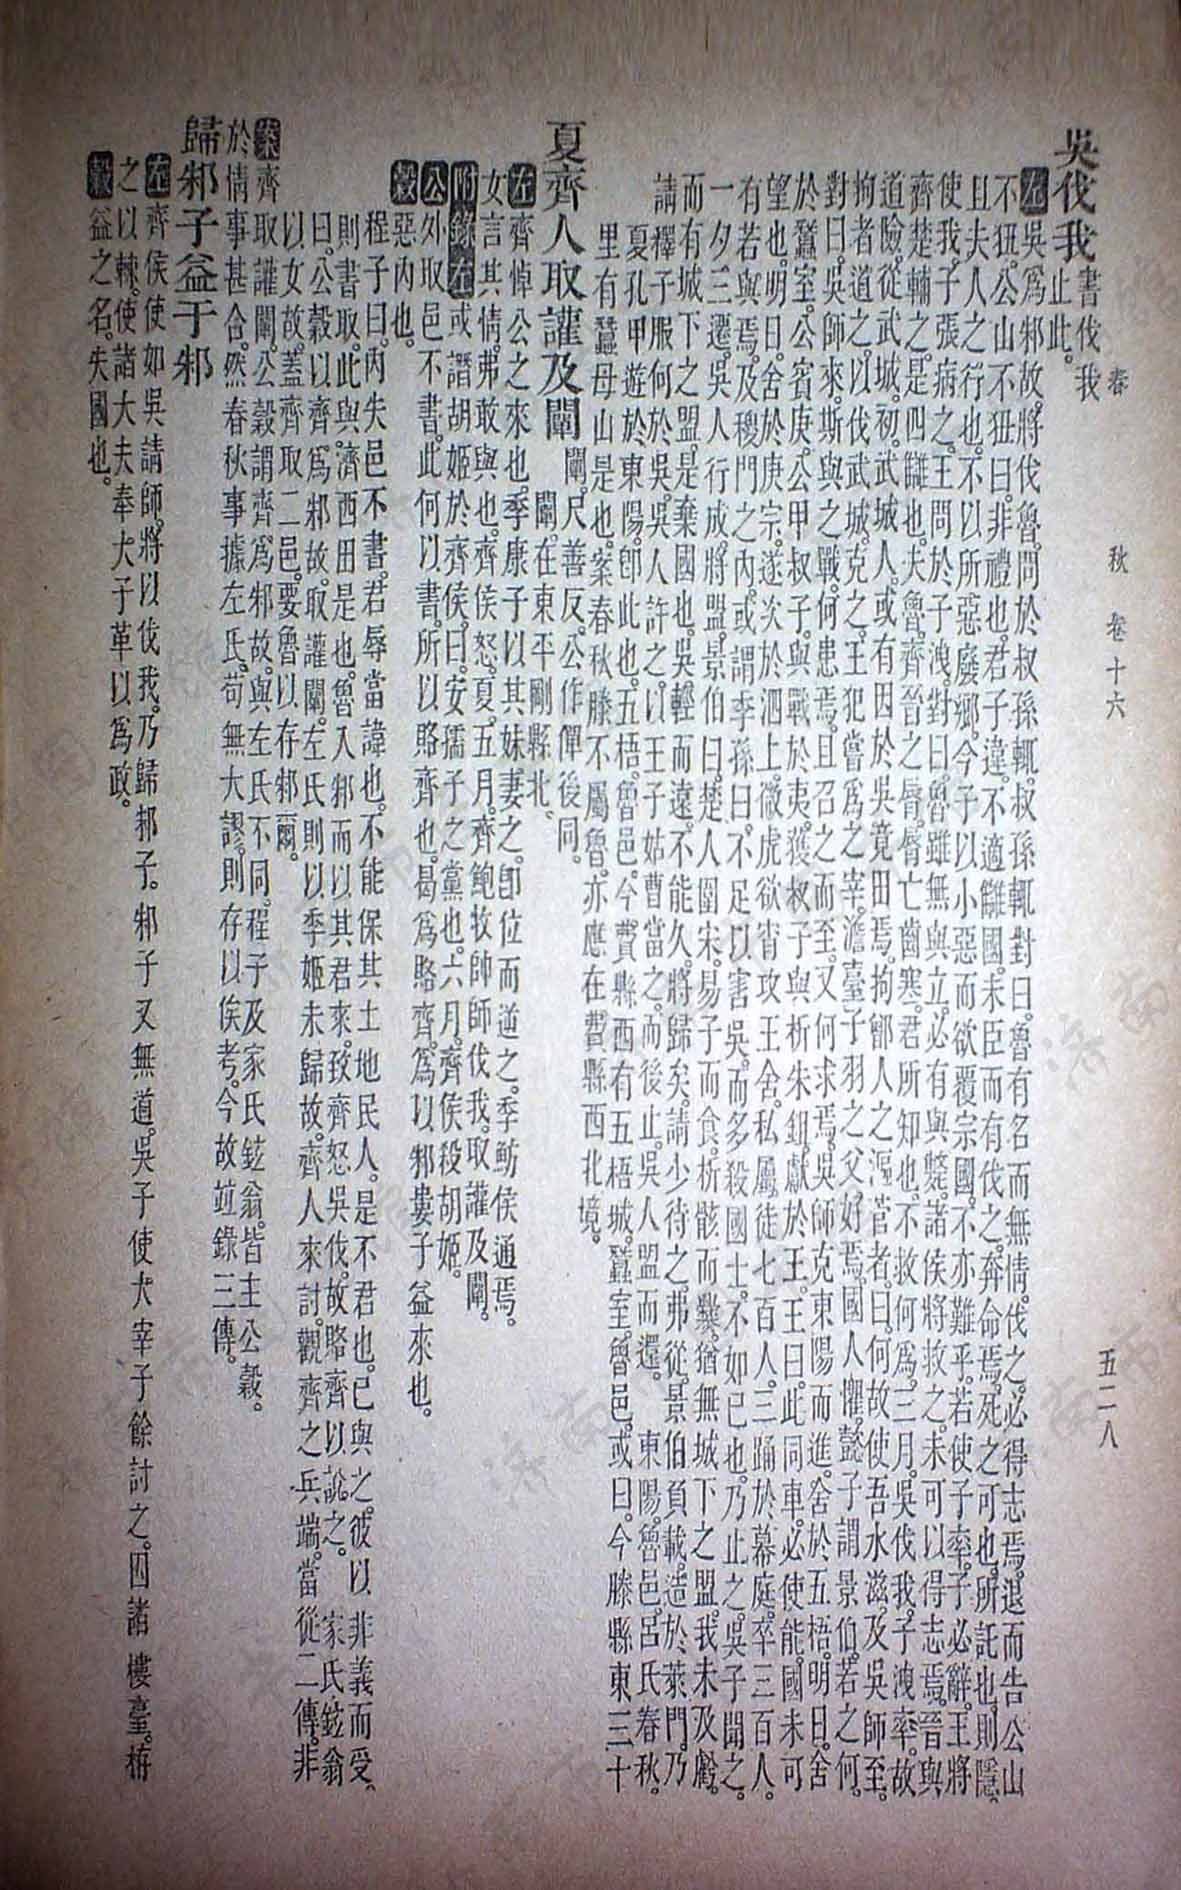 春　秋　卷十六　五二八
吳伐我書伐我
止此。
左吳爲邾故將伐魯。問於叔孫輒。叔孫輒對曰。魯有名而無情。伐之必得志焉。退而告公山
不狃。公山不狃曰。非禮也。君子違。不適讎國。未臣而有伐之。奔命焉。死之可也。所託也則隱。
且夫人之行也。不以所惡廢鄉。今子以小惡而欲覆宗國。不亦難乎。若使子率。子必辭。王將
使我。子張病之。王問於子洩。對曰。魯雖無與立。必有與斃。諸侯將救之。未可以得志焉。晉與
齊楚輔之。是四讎也。夫魯。齊晉之脣。脣亡齒寒。君所知也。不救何爲。三月。吳伐我。子洩率。故
道險。從武城。初。武城人。或有因於吳竟田焉。拘鄫人之漚菅者。曰。何故使吾水滋。及吳師至。
拘者道之。以伐武城。克之。王犯嘗爲之宰。澹臺子羽之父好焉。國人懼。懿子謂景伯。若之何。
對曰。吳師來。斯與之戰。何患焉。且召之而至。又何求焉。吳師克東陽而進。舍於五梧。明日。舍
於蠶室。公賓庚。公甲叔子。與戰於夷。獲叔子與析朱鉏。獻於王。王曰。此同車。必使能。國未可
望也。明日。舍於庚宗。遂次於泗上。微虎欲宵攻王舍。私屬徒七百人。三踊於幕庭。卒三百人。
有若與焉。及稷門之內。或謂季孫曰。不足以害吳。而多殺國士。不如已也。乃止之。吳子聞之。
一夕三遷。吳人行成。將盟。景伯曰。楚人圍宋。易子而食。析骸而爨。猶無城下之盟。我未及虧。
而有城下之盟。是棄國也。吳輕而遠。不能久。將歸矣。請少待之。弗從。景伯負載。造於萊門。乃
請釋子服何於吳。吳人許之。以王子姑曹當之。而後止。吳人盟而還。　東陽。魯邑。呂氏春秋。
夏孔甲遊於東陽。卽此也。五梧。魯邑。今費縣西有五梧城。蠶室。魯邑。或曰。今滕縣東三十
里有蠶母山是也。案春秋滕不屬魯。亦應在費縣西北境。
夏齊人取讙及闡闡。尺善反。公作僤。後同。
闡。在東平剛縣北。
左齊悼公之來也。季康子以其妹妻之。卽位而逆之。季魴侯通焉。
女言其情。弗敢與也。齊侯怒。夏五月。齊鮑牧帥師伐我。取讙及闡。
附錄左或譖胡姬於齊侯。曰。安孺子之黨也。六月。齊侯殺胡姬。
公外取邑不書。此何以書。所以賂齊也。曷爲賂齊。爲以邾婁子益來也。
穀惡內也。
程子曰。內失邑不書。君辱當諱也。不能保其土地民人。是不君也。已與之。彼以非義而受。
則書取。此與濟西田是也。魯入邾而以其君來。致齊怒吳伐。故賂齊以說之。　家氏鉉翁
曰。公穀以齊爲邾故。取讙闡。左氏則以季姬未歸故。齊人來討。觀齊之兵端。當從二傳。非
以女故。蓋齊取二邑。要魯以存邾爾。
案齊取讙闡。公穀謂齊爲邾故。與左氏不同。程子及家氏鉉翁。皆主公穀。
於情事甚合。然春秋事據左氏。苟無大謬。則存以俟考。今故竝錄三傳。
歸邾子益于邾
左齊侯使如吳請師。將以伐我。乃歸邾子。邾子又無道。吳子使大宰子餘討之。囚諸樓臺。栫
之以棘。使諸大夫奉大子革以爲政。
穀益之名。失國也。